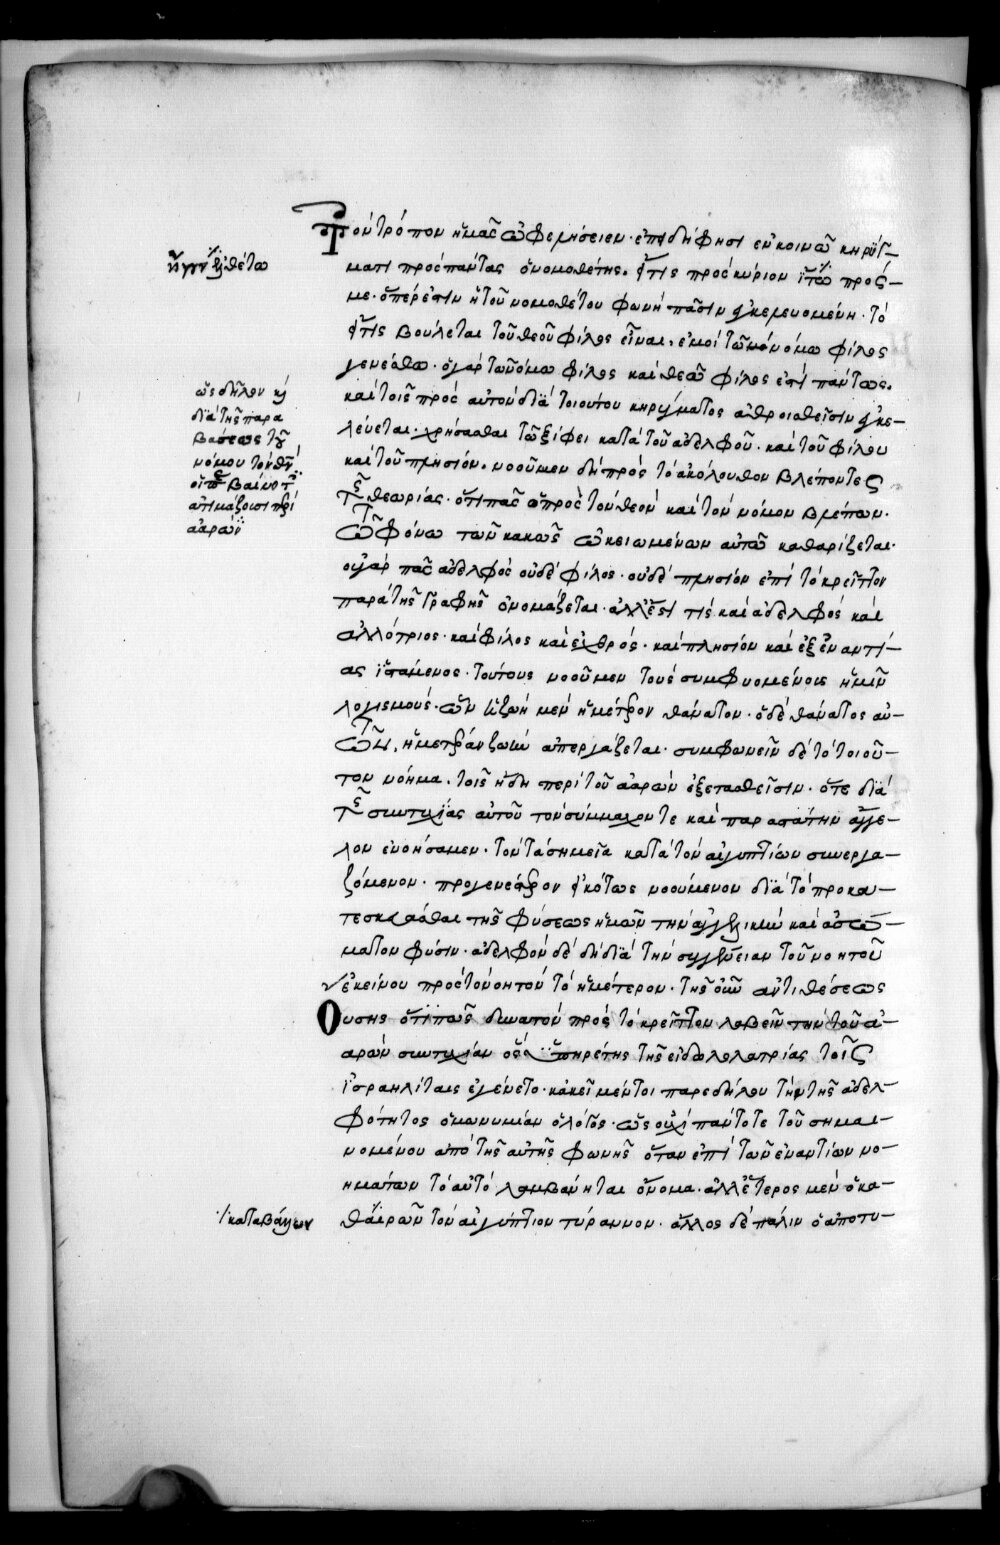 Τὸν τρόπον ἡμᾶς ὠφελήσειεν· ἐπειδὴ φησὶ ἐν κοινῶ κηρύγ-
ματι πρὸς πάντας ὁ νομοθέτης. εἴ τις πρὸς κύριον ἴτω πρός-
με· ὅπερ ἐστὶν ἡ τοῦ νομοθέτου φωνὴ πᾶσιν ἐγκελευομένη· τὸ
εἴ τις βούλεται τοῦ θεοῦ φίλος εἶναι, ἐμοὶ τῶ νόμω φίλος
γενέσθω· ὁ γὰρ τῶ νόμω φίλος καὶ θεῶ φίλος ἐστὶ πάντως.
καὶ τοῖς πρὸς αὐτὸν διὰ τοιούτου κηρύγματος ἀθροισθεῖσιν ἐγκε-
λεύεται· χρήσασθαι τῶ ξίφει κατὰ τοῦ ἀδελφοῦ· καὶ τοῦ φίλου
καὶ τοῦ πλησίον. νοοῦμεν δὴ πρὸς τὸ ἀκόλουθον βλέποντες
τῆς θεωρίας· ὅτι πᾶς ὁ πρὸς τὸν θεὸν καὶ τὸν νόμον βλέπων·
τῶ φόνω τῶν κακῶς ὠκειωμένων αὐτῶ καθαρίζεται·
οὐ γὰρ πᾶς ἀδελφὸς οὐδὲ φίλος· οὐδὲ πλησίον ἐπὶ τὸ κρεῖττον
παρὰ τῆς γραφῆς ὀνομάζεται· ἀλλ' ἔστι τίς καὶ ἀδελφὸς καὶ
ἀλλότριος· καὶ φίλος καὶ ἐχθρός· καὶ πλησίον καὶ ἐξ ἐναντί-
ας ἱστάμενος· τούτους νοοῦμεν τοὺς συμφυομένους ἡμῖν
λογισμούς· ὧν ἡ ζωὴ μὲν ἡμέτερον θάνατον· ὁ δὲ θάνατος αὐ-
τῶν, ἡμετέραν ζωὴν ἀπεργάζεται· συμφωνεῖν δὲ τὸ τοιοῦ-
τον νόημα· τοῖς ἤδη περὶ τοῦ ἀαρὼν ἐξετασθεῖσιν· ὅτε διὰ
τῆς συντυχίας αὐτοῦ τὸν σύμμαχόν τε καὶ παραστάτην ἄγγε-
λον ἐνοήσαμεν· τὸν τὰ σημεῖα κατὰ τῶν αἰγυπτίων συνεργα-
ζόμενον· προγενέστερον εἰκότως νοούμενον διὰ τὸ προκα-
τεσκευάσθαι τῆς φύσεως ἡμῶν τὴν ἀγγελικὴν καὶ ἀσώ-
ματον φύσιν· ἀδελφὸν δὲ δὴ διὰ τὴν συγγένειαν τοῦ νοητοῦ
ἐκείνου πρὸς τὸ νοητὸν τὸ ἡμέτερον· τῆς οὖν ἀντιθέσεως
Οὔσης ὅτι πῶς δυνατὸν πρὸς τὸ κρεῖττον λαβεῖν τὴν τοῦ ἀ-
αρὼν συντυχίαν ὃς ὑπηρέτης τῆς εἰδωλολατρίας τοῖς
ἰσραηλίταις ἐγένετο· κἀκεῖ μέντοι παρεδήλου τὴν τῆς ἀδελ-
φότητος ὁμωνυμίαν ὁ λόγος· ὡς οὐχὶ πάντοτε τοῦ σημαι-
νομένου ἀπὸ τῆς αὐτῆς φωνῆς ὅταν ἐπὶ τῶν ἐναντίων νο-
ημάτων τὸ αὐτὸ λαμβάνηται ὄνομα· ἀλλ' ἕτερος μὲν ὁ κα-
θαιρῶν τὸν αἰγύπτιον τύραννον· ἄλλος δὲ πάλιν ὁ ἀποτυ-
ὡς δῆλον
διὰ τῆς παρα
βάσεως τοῦ
νόμου τὸν
ἀτιμάζουσι
ἀαρὼν
καταβάλλων